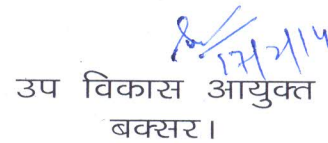 17/2/14
उप विकास आयुक्त
बक्सर।